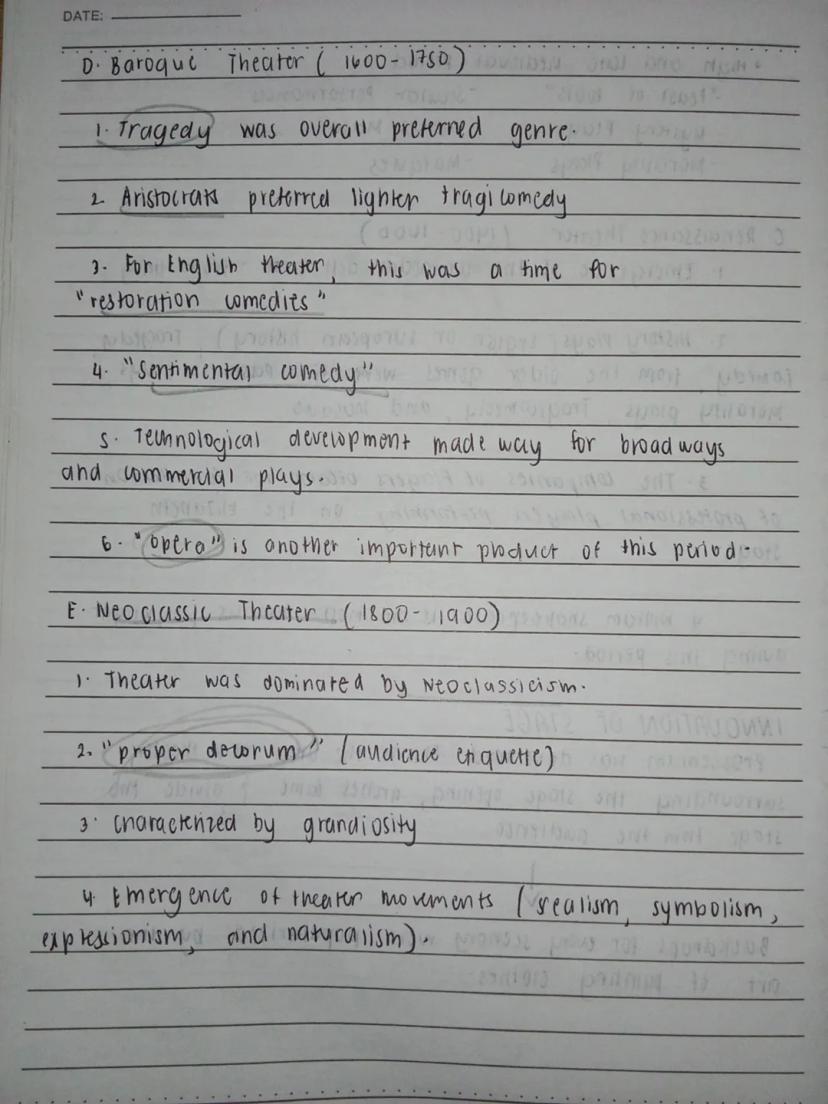 DATE:
D. Baroque Theater ( 1600 - 1750 )
1. Tragedy was overall preferred genre.
2. Aristocrats preferred lighter tragicomedy
3. For English theater, this was a time for
"restoration comedies"
4. "Sentimental comedy"
5. Technological development made way for broadways
and commercial plays.
6. "Opera" is another important product of this period.
E. Neoclassic Theater ( 1800 - 1900 )
1. Theater was dominated by Neoclassicism.
2. "proper decorum" ( audience etiquette )
3. characterized by grandiosity
4. Emergence of theater movements ( realism, symbolism,
expressionism, and naturalism ).